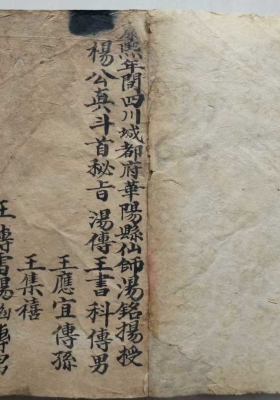 熙年閠四川城都府華陽縣仙師湯銘揚授
楊公真斗首秘旨湯傳王書科傳男
王應宜傳孫
王集禧
王傳